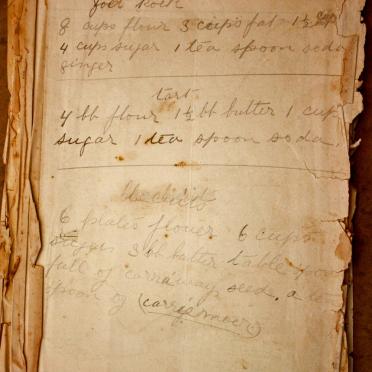 8 cups flour 3 cups fat 1½
4 cups sugar 1 tea spoon soda
ginger
tart
4 lb flour 1½ lb butter 1 cup
sugar 1 tea spoon soda.
6 plates flower 6 cups
3 lb butter table spoon
full of carraway seeds. a
spoon of